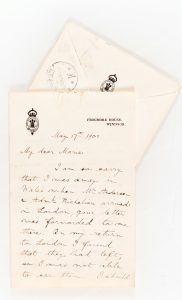 FROGMORE HOUSE,
WINDSOR.
May 17th 190
My dear
I am so sorry
that I was away in
Wales when Mr Anderson
& Adml Nicholson arrived
in London your letter
was forwarded to me
there. On my return
to London I found
that they had left,
so I was not able
to see them